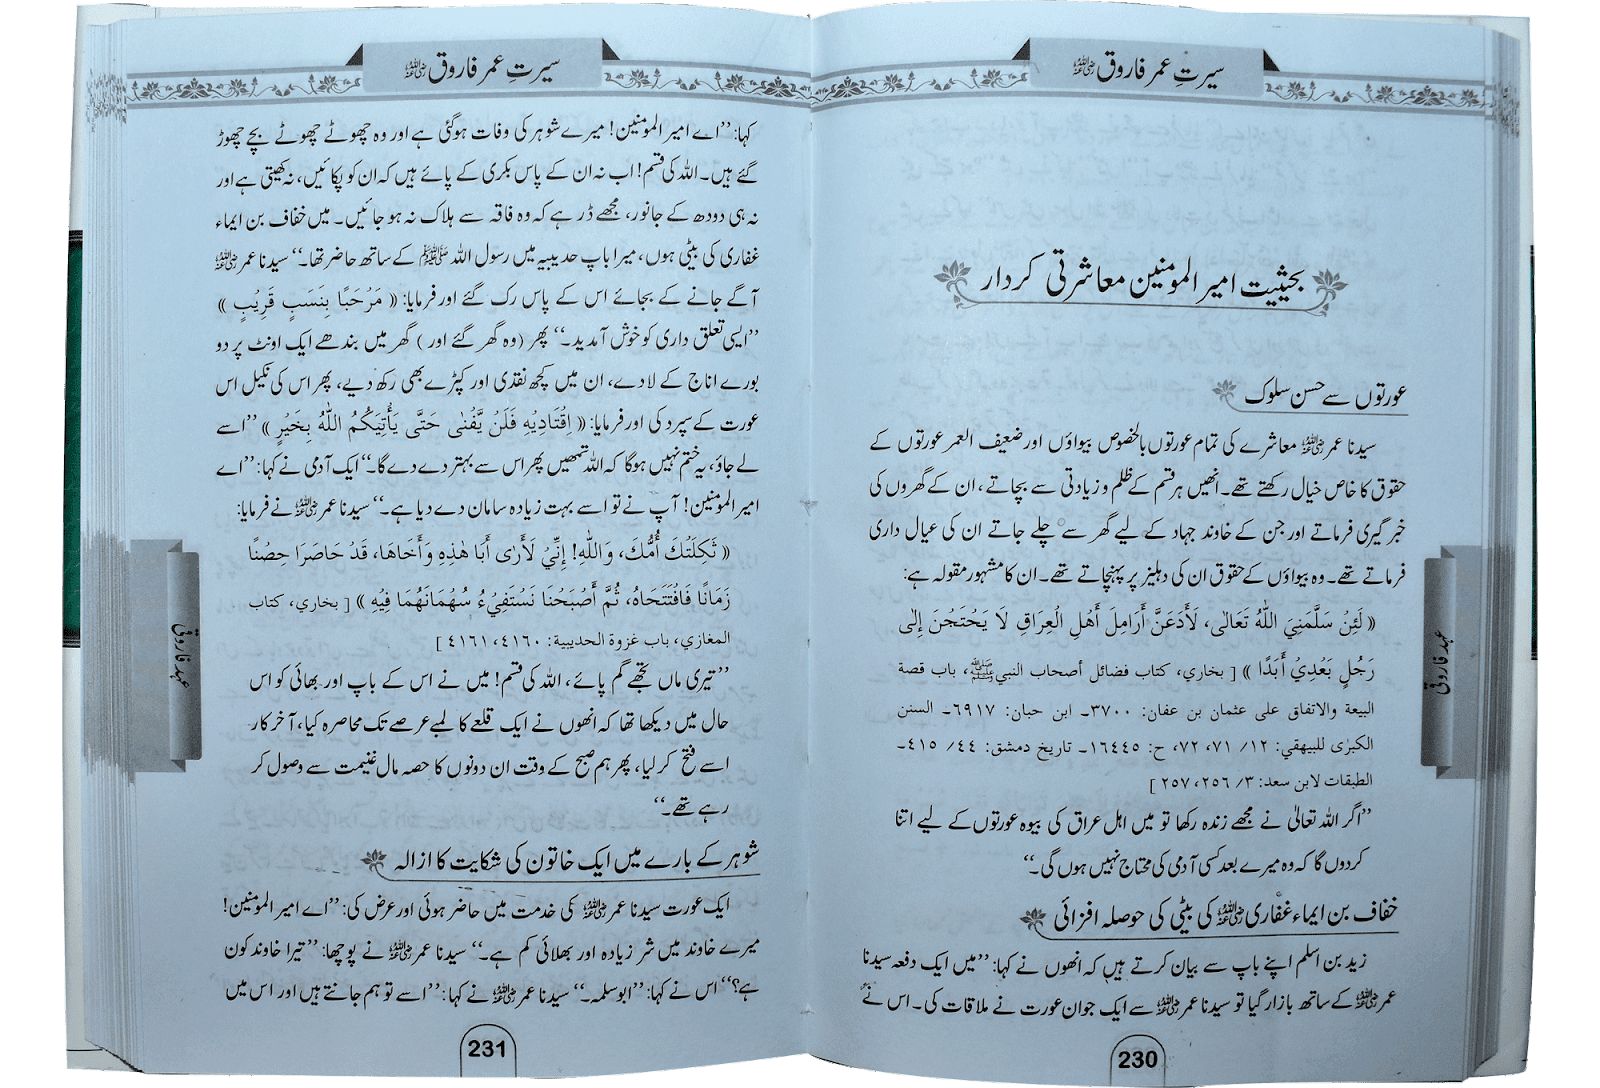 سیرتِ عمر فاروق رضی اللہ عنہ
بحیثیت امیر المومنین معاشرتی کردار
عورتوں سے حسن سلوک
سیدنا عمر رضی اللہ عنہ معاشرے کی تمام عورتوں بالخصوص بیواؤں اور ضعیف العمر عورتوں کے
حقوق کا خاص خیال رکھتے تھے۔ انھیں ہر قسم کے ظلم و زیادتی سے بچاتے، ان کے گھروں کی
خبر گیری فرماتے اور جن کے خاوند جہاد کے لیے گھر سے چلے جاتے ان کی عیال داری
فرماتے تھے۔ وہ بیواؤں کے حقوق ان کی دہلیز پر پہنچاتے تھے۔ ان کا مشہور مقولہ ہے:
« لَئِنْ سَلَّمَنِيَ اللّٰهُ تَعَالٰى، لَأَدَعَنَّ أَرَامِلَ أَهْلِ الْعِرَاقِ لَا يَحْتَجْنَ إِلٰى
رَجُلٍ بَعْدِيْ أَبَدًا » [ بخاري، كتاب فضائل أصحاب النبي ﷺ، باب قصة
البيعة والاتفاق على عثمان بن عفان: ٣٧٠٠۔ ابن حبان: ٦٩١٧۔ السنن
الكبرٰى للبيهقي: ١٢/ ٧١، ٧٢، ح: ١٦٤٤٥۔ تاريخ دمشق: ٤٤/ ٤١٥۔
الطبقات لابن سعد: ٣/ ٢٥٦، ٢٥٧ ]
’’اگر اللہ تعالیٰ نے مجھے زندہ رکھا تو میں اہل عراق کی بیوہ عورتوں کے لیے اتنا
کردوں گا کہ وہ میرے بعد کسی آدمی کی محتاج نہیں ہوں گی۔‘‘
خفاف بن ایماء غفاری رضی اللہ عنہ کی بیٹی کی حوصلہ افزائی
زید بن اسلم اپنے باپ سے بیان کرتے ہیں کہ انھوں نے کہا: ’’میں ایک دفعہ سیدنا
عمر رضی اللہ عنہ کے ساتھ بازار گیا تو سیدنا عمر رضی اللہ عنہ سے ایک جوان عورت نے ملاقات کی۔ اس نے
230
عہد فاروقی
سیرتِ عمر فاروق رضی اللہ عنہ
کہا: ’’اے امیر المومنین! میرے شوہر کی وفات ہوگئی ہے اور وہ چھوٹے چھوٹے بچے چھوڑ
گئے ہیں۔ اللہ کی قسم! اب نہ ان کے پاس بکری کے پائے ہیں کہ ان کو پکائیں، نہ کھیتی ہے اور
نہ ہی دودھ کے جانور، مجھے ڈر ہے کہ وہ فاقہ سے ہلاک نہ ہو جائیں۔ میں خفاف بن ایماء
غفاری کی بیٹی ہوں، میرا باپ حدیبیہ میں رسول اللہ ﷺ کے ساتھ حاضر تھا۔‘‘ سیدنا عمر رضی اللہ عنہ
آگے جانے کے بجائے اس کے پاس رک گئے اور فرمایا: « مَرْحَبًا بِنَسَبٍ قَرِيْبٍ »
’’ایسی تعلق داری کو خوش آمدید۔‘‘ پھر (وہ گھر گئے اور) گھر میں بندھے ایک اونٹ پر دو
بورے اناج کے لادے، ان میں کچھ نقدی اور کپڑے بھی رکھ دیے، پھر اس کی نکیل اس
عورت کے سپرد کی اور فرمایا: « اِقْتَادِيْهِ فَلَنْ يَّفْنٰى حَتّٰى يَأْتِيَكُمُ اللّٰهُ بِخَيْرٍ » ’’اسے
لے جاؤ، یہ ختم نہیں ہوگا کہ اللہ تمھیں پھر اس سے بہتر دے دے گا۔‘‘ ایک آدمی نے کہا: ’’اے
امیر المومنین! آپ نے تو اسے بہت زیادہ سامان دے دیا ہے۔‘‘ سیدنا عمر رضی اللہ عنہ نے فرمایا:
« ثَكِلَتْكَ أُمُّكَ، وَاللّٰهِ! إِنِّيْ لَأَرٰى أَبَا هٰذِهِ وَأَخَاهَا، قَدْ حَاصَرَا حِصْنًا
زَمَانًا فَافْتَتَحَاهُ، ثُمَّ أَصْبَحْنَا نَسْتَفِيْءُ سُهْمَانَهُمَا فِيْهِ » [ بخاري، كتاب
المغازي، باب غزوة الحديبية: ٤١٦٠، ٤١٦١ ]
’’تیری ماں تجھے گم پائے، اللہ کی قسم! میں نے اس کے باپ اور بھائی کو اس
حال میں دیکھا تھا کہ انھوں نے ایک قلعے کا لمبے عرصے تک محاصرہ کیا، آخر کار
اسے فتح کر لیا، پھر ہم صبح کے وقت ان دونوں کا حصہ مال غنیمت سے وصول کر
رہے تھے۔‘‘
شوہر کے بارے میں ایک خاتون کی شکایت کا ازالہ
ایک عورت سیدنا عمر رضی اللہ عنہ کی خدمت میں حاضر ہوئی اور عرض کی: ’’اے امیر المومنین!
میرے خاوند میں شر زیادہ اور بھلائی کم ہے۔‘‘ سیدنا عمر رضی اللہ عنہ نے پوچھا: ’’تیرا خاوند کون
ہے؟‘‘ اس نے کہا: ’’ابوسلمہ۔‘‘ سیدنا عمر رضی اللہ عنہ نے کہا: ’’اسے تو ہم جانتے ہیں اور اس میں
231
عہد فاروقی